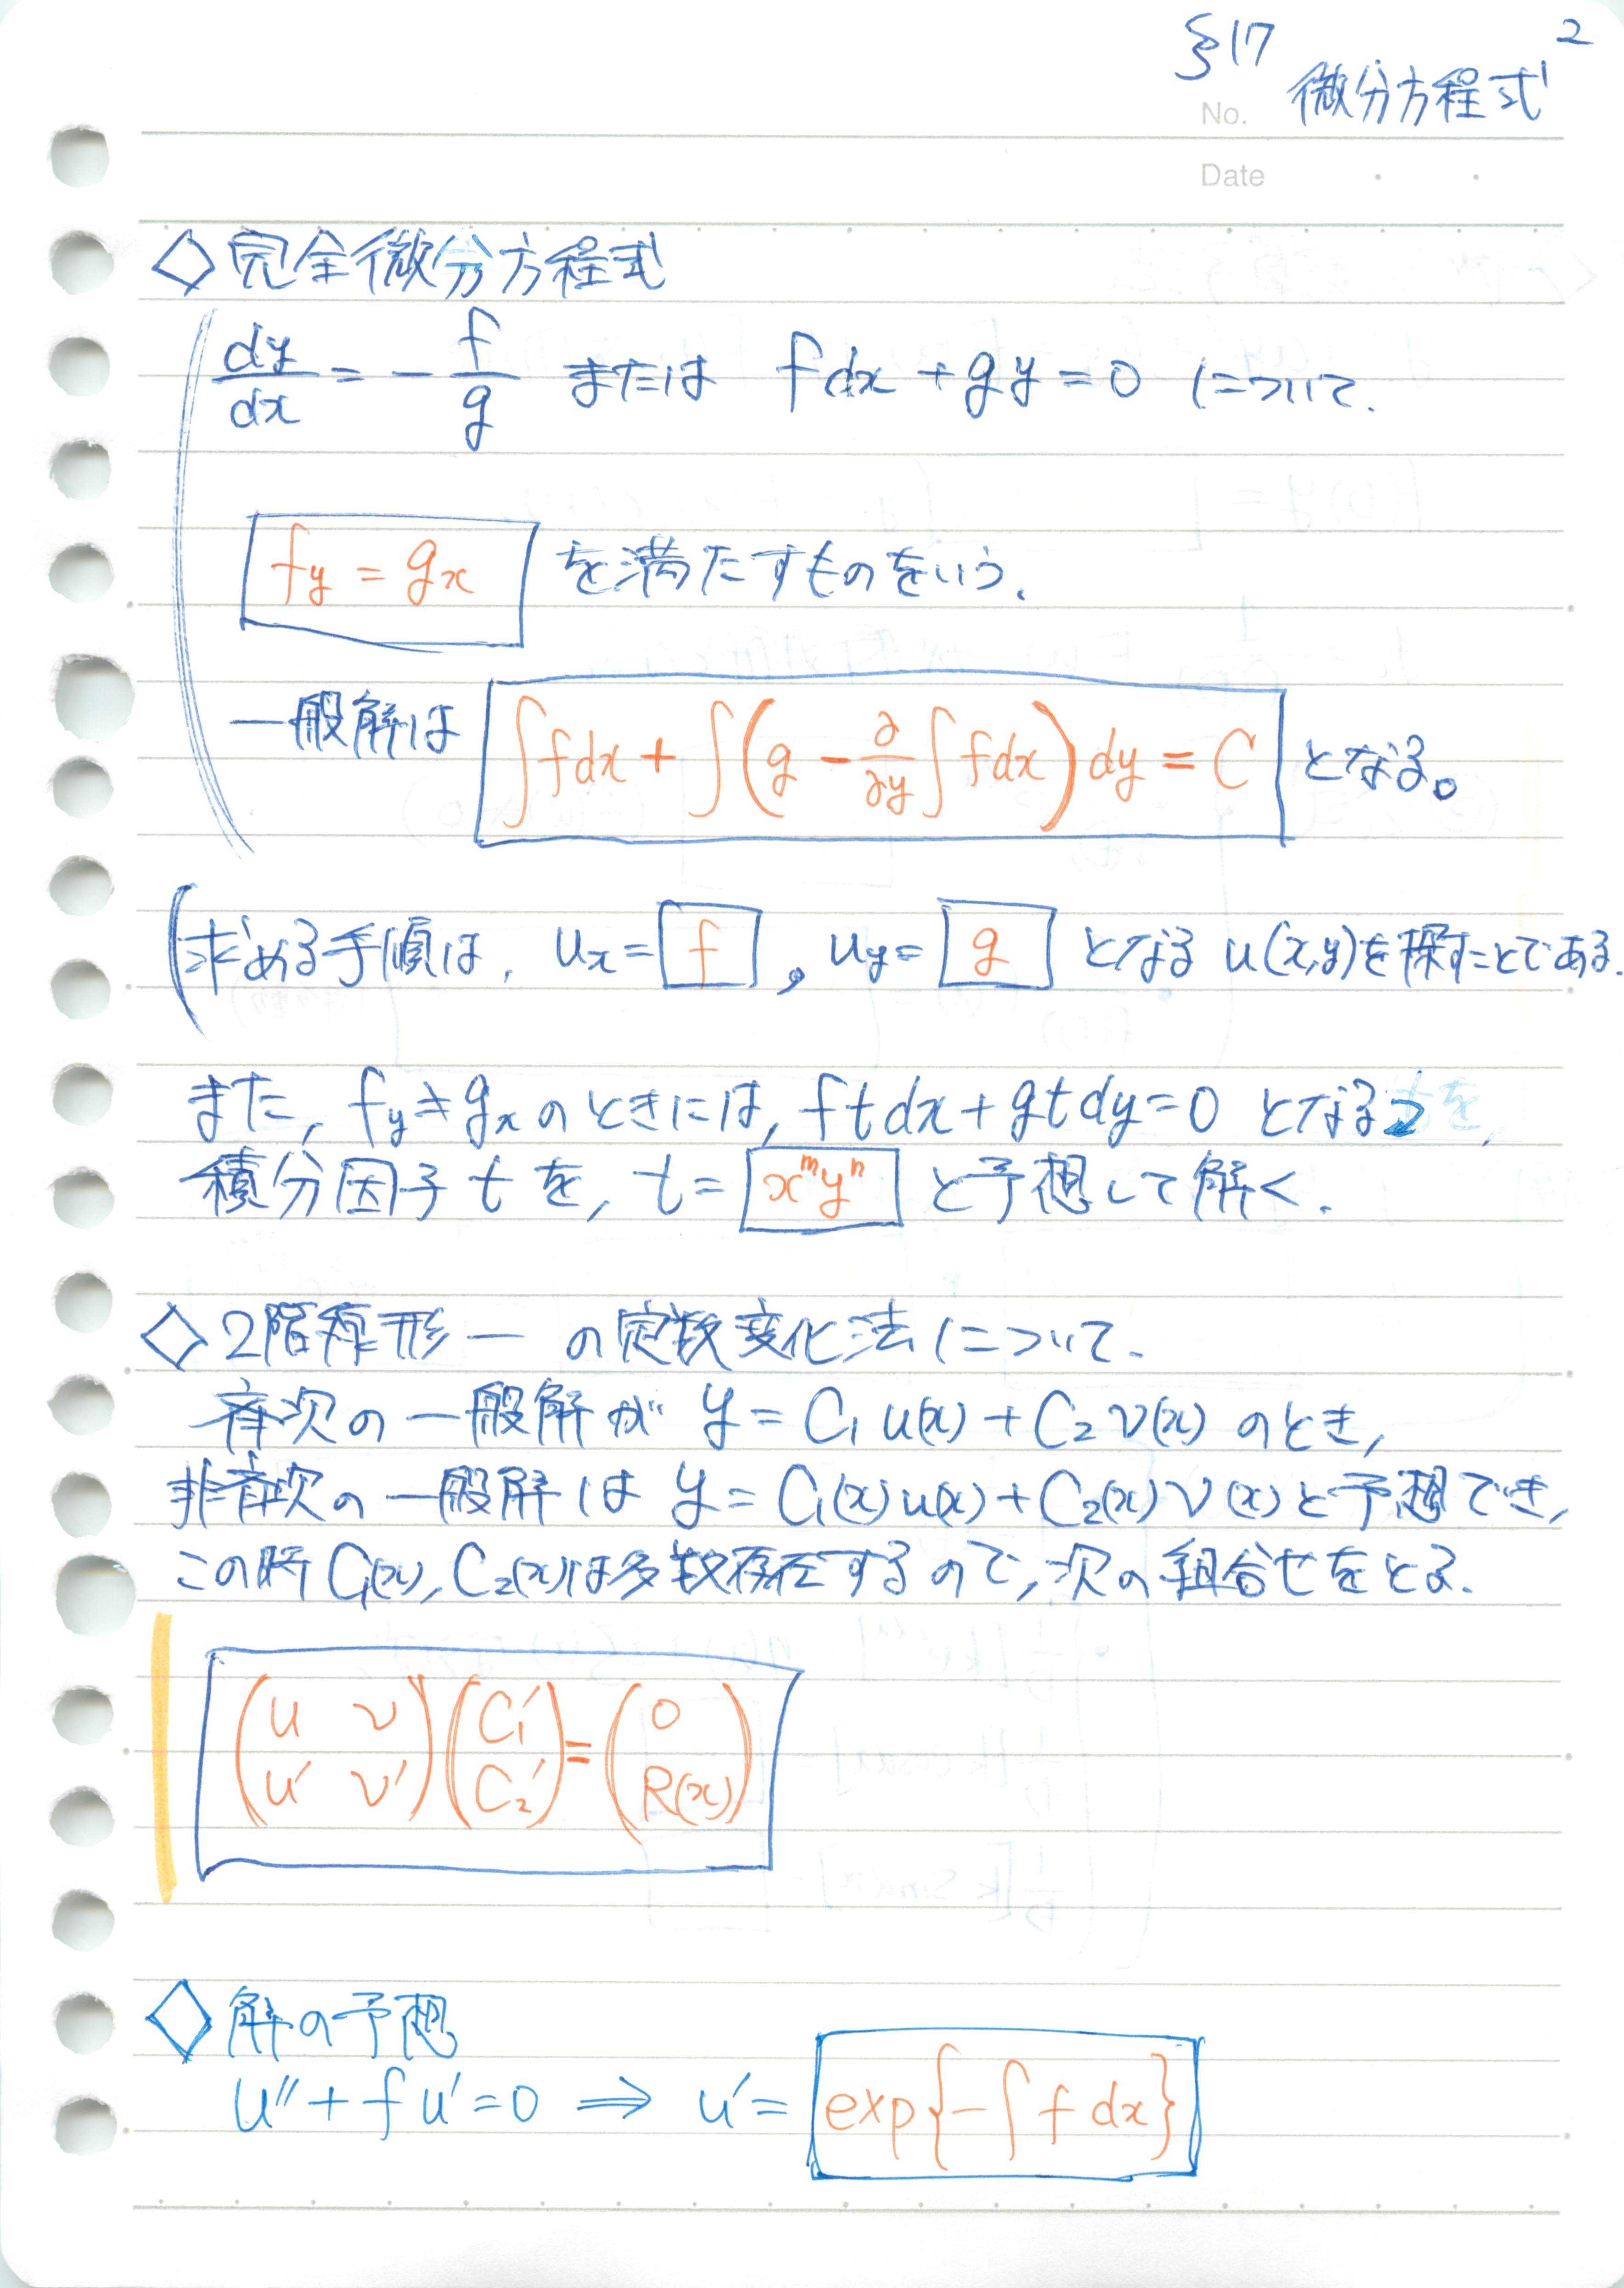 §17 2
微分方程式
No.
Date
◇完全微分方程式
dy/dx = - f/g または fdx + gy = 0 について.
fy = gx を満たすものをいう.
一般解は ∫fdx + ∫(g - ∂/∂y ∫fdx) dy = C となる。
求める手順は, ux = f , uy = g となる u(x,y)を探すことである.
また, fy≠gx のときには, ftdx + gtdy = 0 となる
積分因子 t を, t = x^m y^n と予想して解く.
◇2階線形ー の定数変化法について.
斉次の一般解が y = C₁u(x) + C₂v(x) のとき,
非斉次の一般解は y = C₁(x)u(x) + C₂(x)v(x) と予想でき,
この時 C₁(x), C₂(x)は多数存在するので, 次の組合せをとる.
(u v) (C₁′) = (0)
(u′ v′) (C₂′) (R(x))
◇解の予想
u″ + fu′ = 0 ⇒ u′ = exp{-∫f dx}